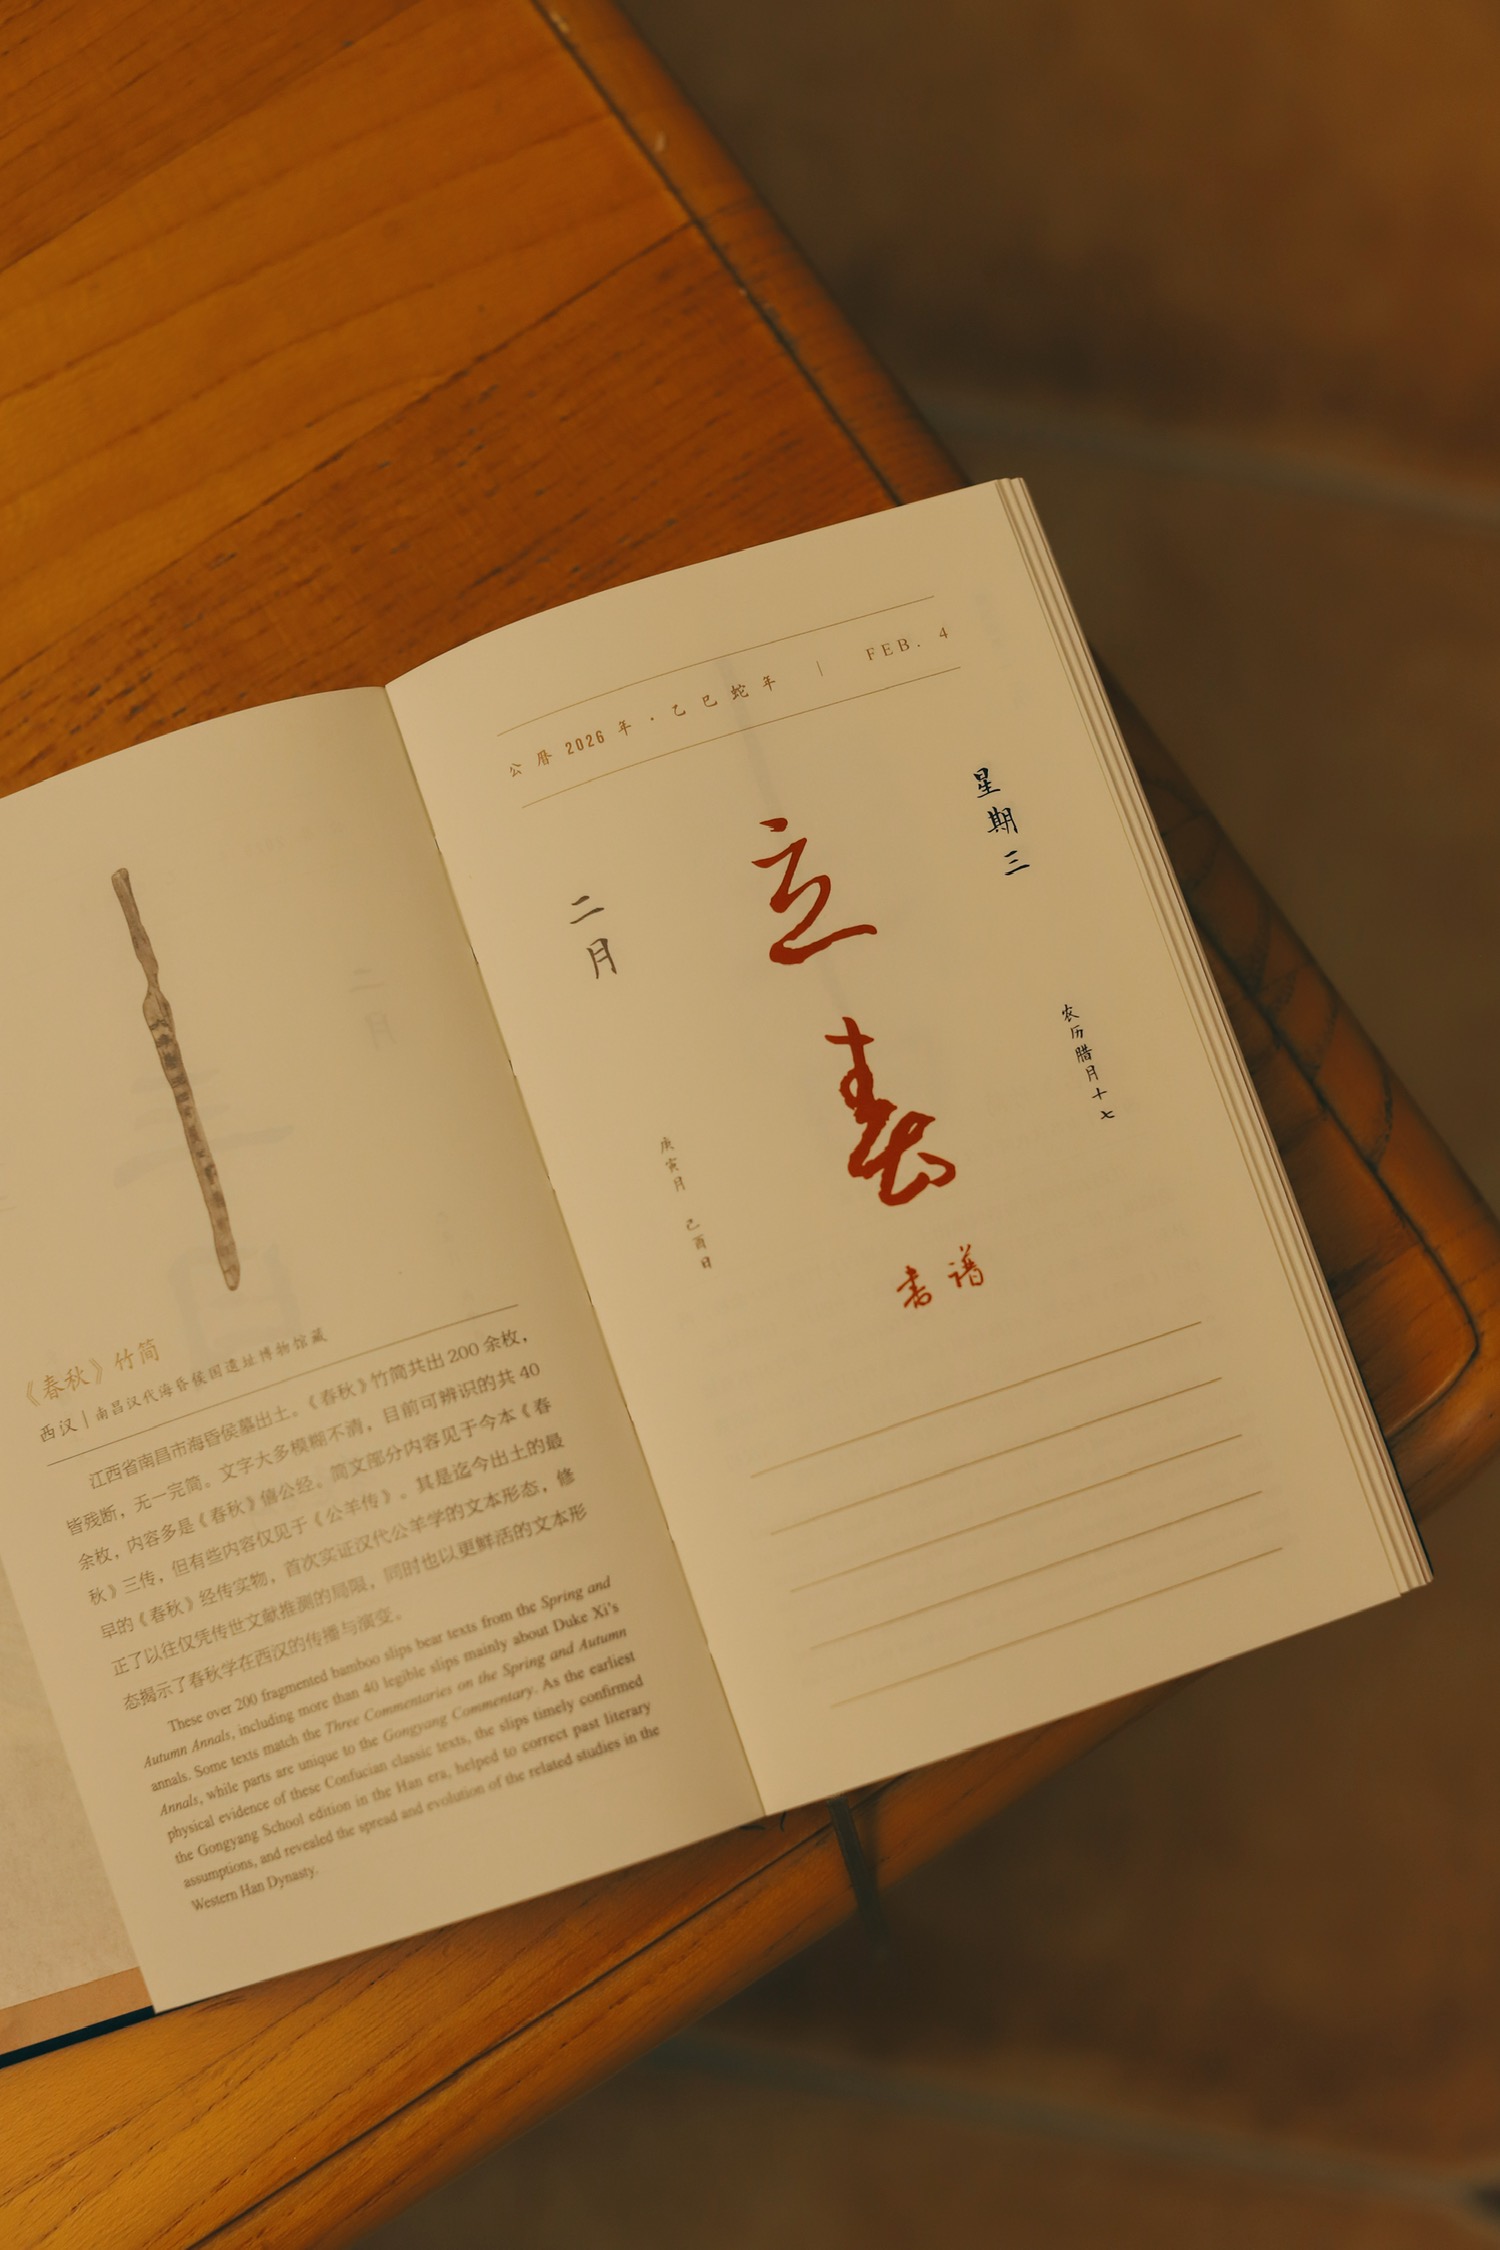 《春秋》竹简
西汉 | 南昌汉代海昏侯国遗址博物馆藏
江西省南昌市海昏侯墓出土。《春秋》竹简共出200余枚，
皆残断，无一完简。文字大多模糊不清，目前可辨识的共40
余枚，内容多是《春秋》僖公经。简文部分内容见于今本《春
秋》三传，但有些内容仅见于《公羊传》。其是迄今出土的最
早的《春秋》经传实物，首次实证汉代公羊学的文本形态，修
正了以往仅凭传世文献推测的局限，同时也以更鲜活的文本形
态揭示了春秋学在西汉的传播与演变。
These over 200 fragmented bamboo slips bear texts from the Spring and
Autumn Annals, including more than 40 legible slips mainly about Duke Xi's
annals. Some texts match the Three Commentaries on the Spring and Autumn
Annals, while parts are unique to the Gongyang Commentary. As the earliest
physical evidence of these Confucian classic texts, the slips timely confirmed
the Gongyang School edition in the Han era, helped to correct past literary
assumptions, and revealed the spread and evolution of the related studies in the
Western Han Dynasty.
公曆2026年·乙巳蛇年 | FEB. 4
星期三
二月
立春
农历腊月十七
庚寅月 己酉日
书谱